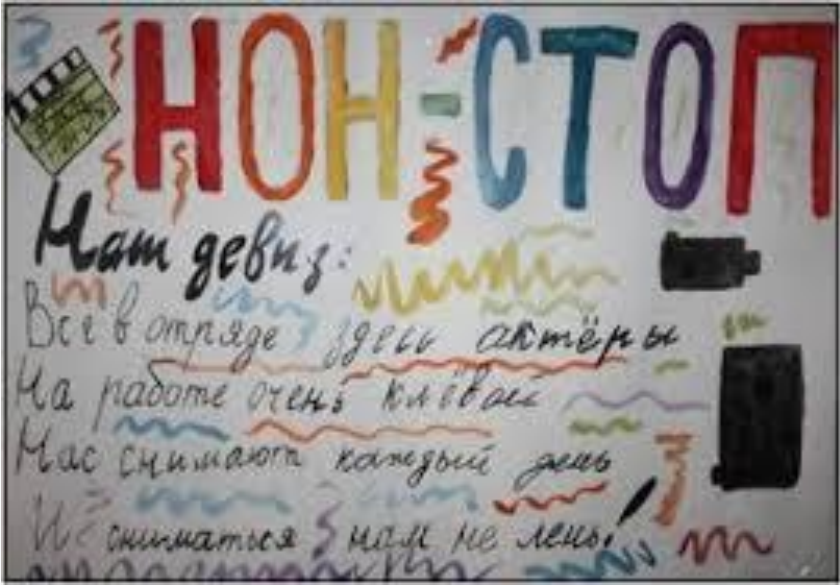 НОН-СТОП
Наш девиз:
Все в отряде здесь актёры
На работе очень клёвой
Нас снимают каждый день
И сниматься нам не лень!